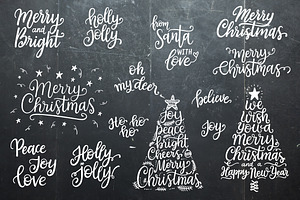 Merry
and
Bright
holly
Jolly
from
Santa
WITH
love
Merry
Christmas
Merry
Christmas
oh
my deer
Merry
Christmas
believe
Ho-ho-
ho
Joy
Peace
Joy
love
Holly
Jolly
Joy
peace
Bright
Cheers
Merry
Christmas
we
wish
you a
Merry
Christmas
and a
Happy New Year